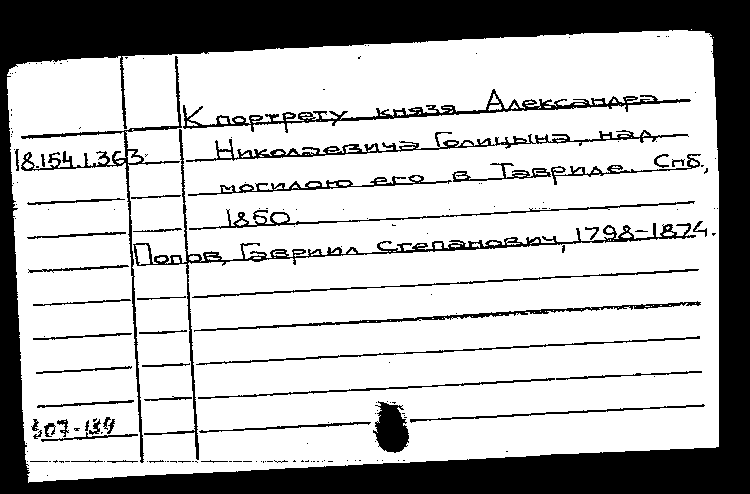 К портрету князя Александра
18.154.1.363 Николаевича Голицына, над
могилою его в Тавриде. Спб,
1850.
Попов, Гавриил Степанович, 1798-1874.
307-139